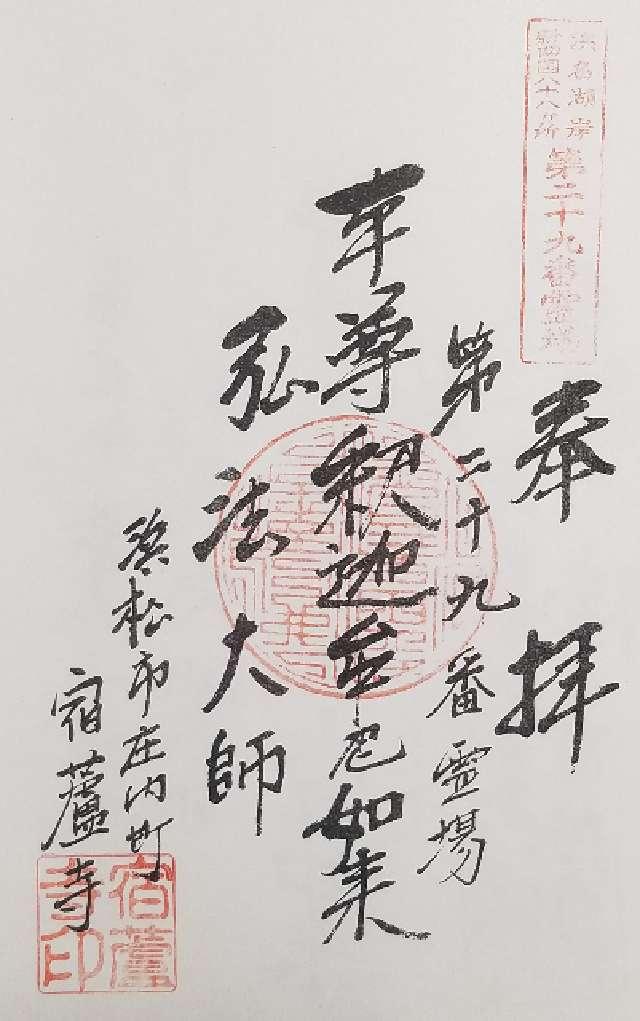 浜名湖岸
新四国八十八ケ所
第二十九番霊場
奉拝
第二十九番霊場
本尊釈迦牟尼如来
弘法大師
浜松市庄内町
宿蘆寺
宿蘆寺印